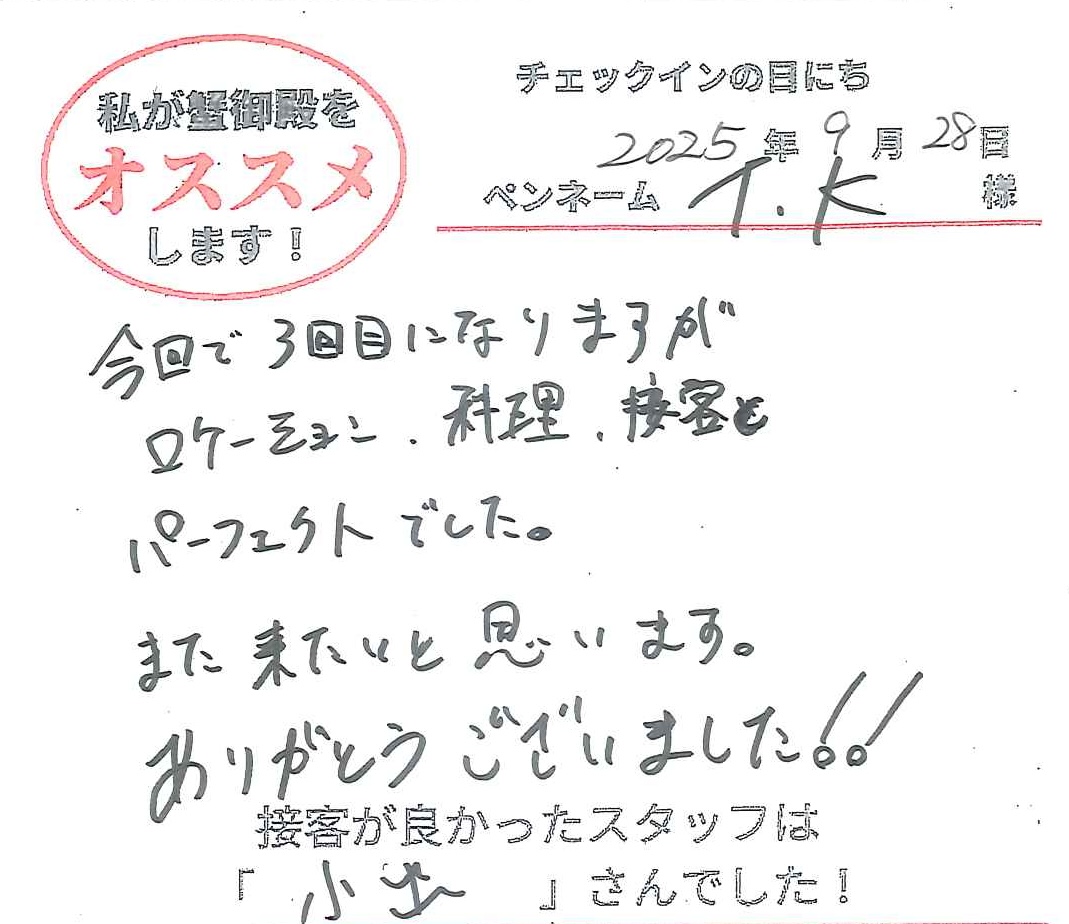 私が蟹御殿を
オススメ
します！
チェックインの日にち
2025年9月28日
ペンネーム T.K 様
今回で3回目になりますが
ロケーション、料理、接客と
パーフェクトでした。
また来たいと思います。
ありがとうございました!!
接客が良かったスタッフは
「小出」さんでした！